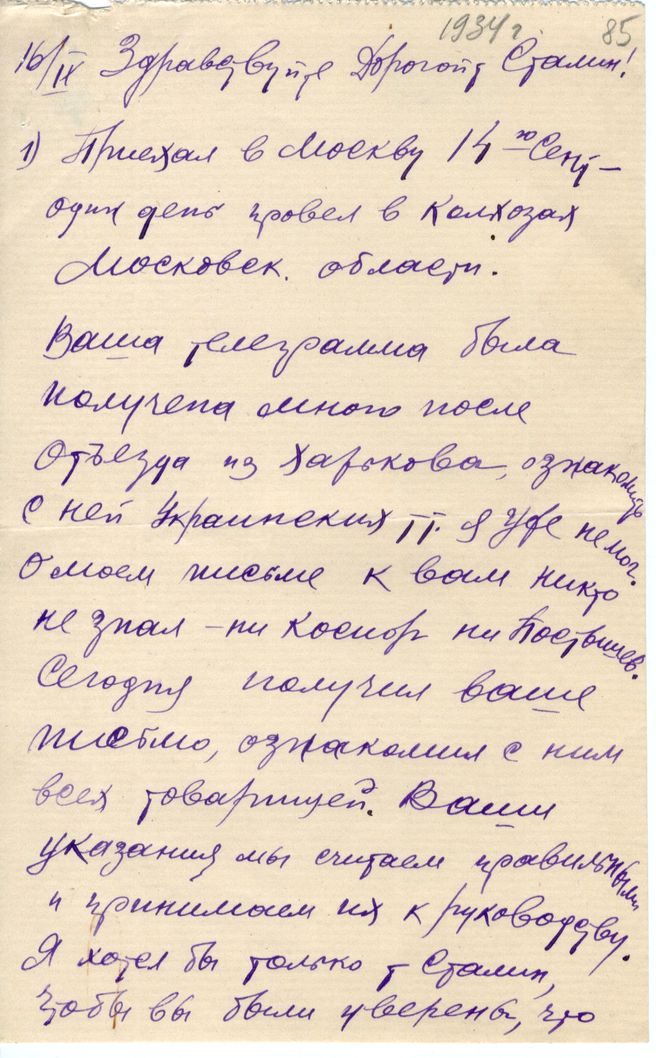 1934 г. 85
16/IX Здравствуйте Дорогой т Сталин!
1) Приехал в Москву 14-го Сент-
один день провел в Колхозах
Московск. области.
Ваша телеграмма была
получена много после
отъезда из Харькова, ознакомить
с ней Украинских т.т. я уже не мог.
О моем письме к вам никто
не знал - ни Косиор ни Постышев.
Сегодня получил ваше
письмо, ознакомил с ним
всех товарищей. Ваши
указания мы считаем правильными
и принимаем их к руководству.
Я хотел бы только т Сталин,
чтобы вы были уверены, что